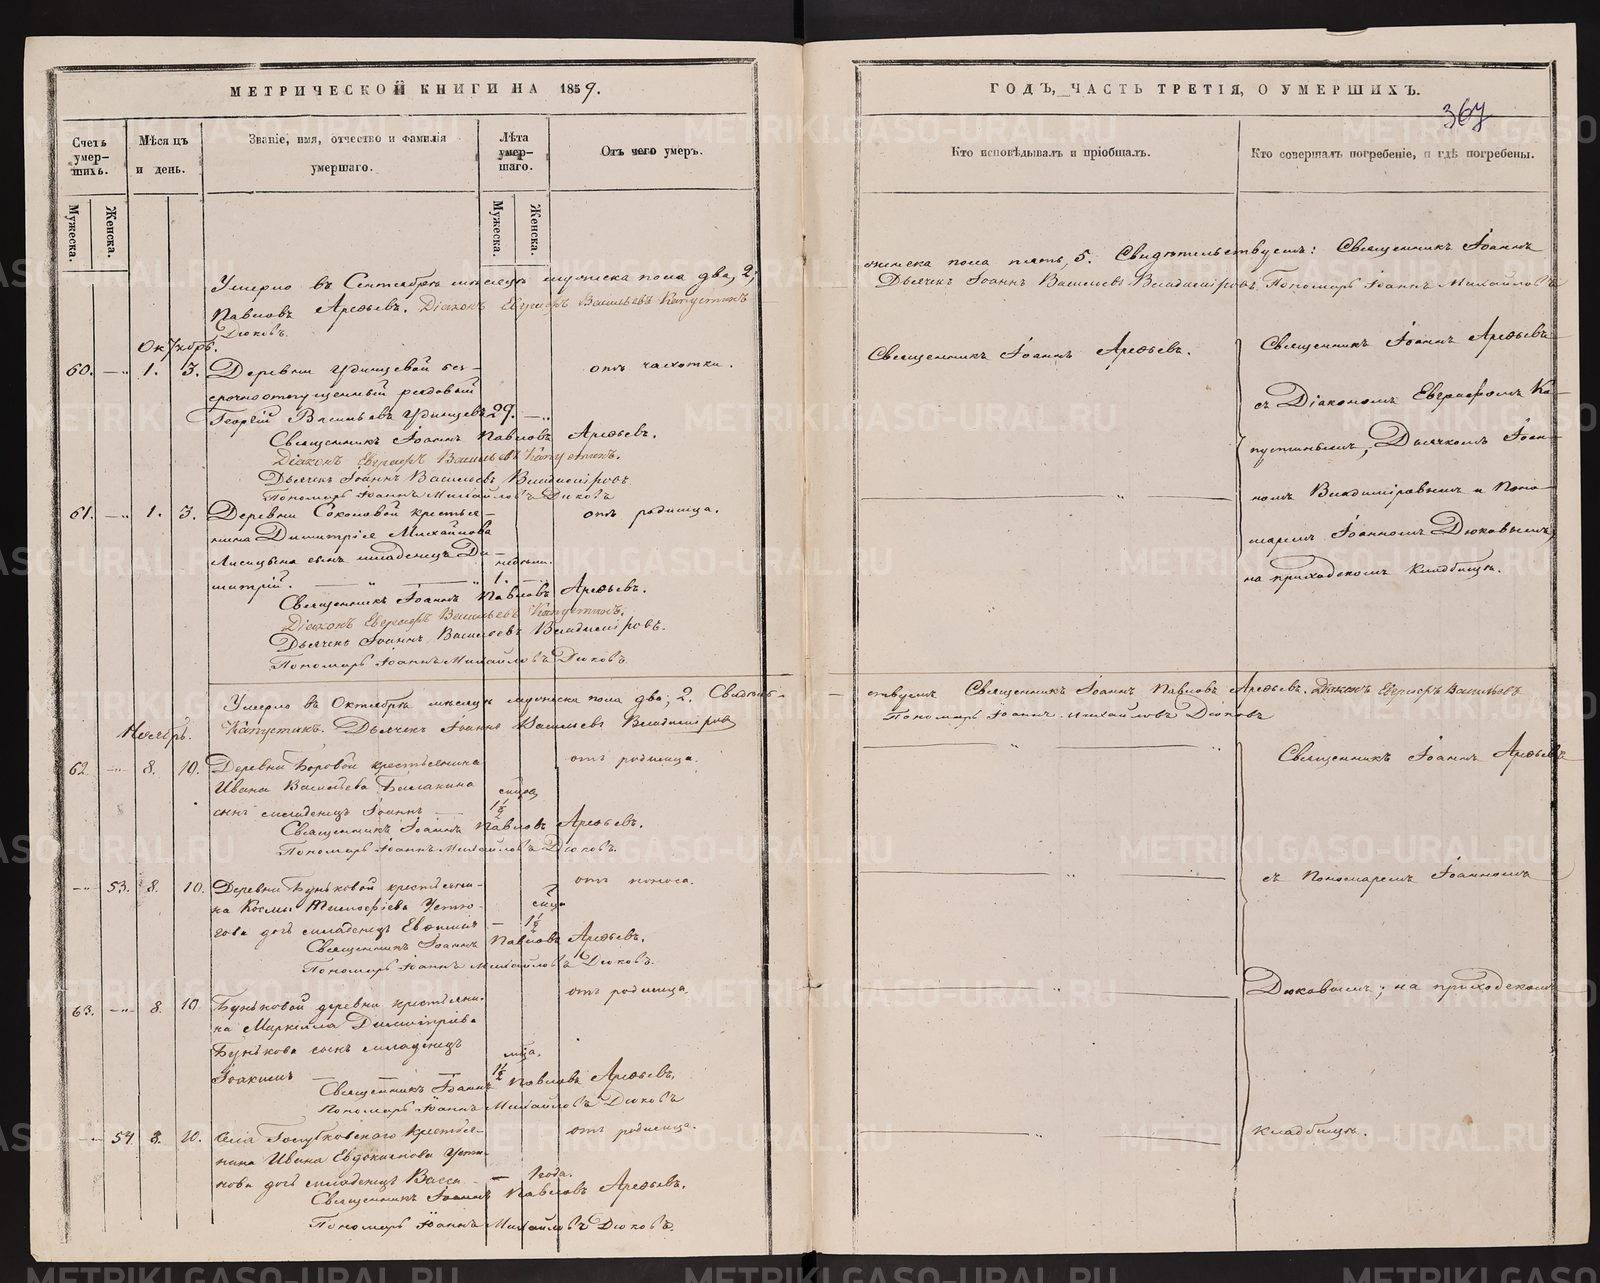 МЕТРИЧЕСКОЙ КНИГИ НА 1859.
Счетъ умер- шихъ.
Мѣсяцъ и день.
Званіе, имя, отчество и фамилія умершаго.
Лѣта умер- шаго.
Отъ чего умеръ.
Мужеска.
Женска.
Мужеска.
Женска.
Умерло въ Сентябрѣ мѣсяцѣ мужеска пола два, 2,
Павловъ Арефьевъ. Діаконъ Евграфъ Васильевъ Капустинъ
Дюковъ.
Октябрь.
60. —„— 1. 3. Деревни Удинцевой без- отъ чахотки.
срочноотпущенный рядовой
Георгій Васильевъ Удинцевъ 29. —„—
Священникъ Іоаннъ Павловъ Арефьевъ.
Діаконъ Евграфъ Васильевъ Капустинъ.
Дьячекъ Іоаннъ Васильевъ Владиміровъ
Пономарь Іоаннъ Михайловъ Дюковъ
61. —„— 1. 3. Деревни Соколовой крестья- отъ родимца.
нина Димитрія Михайлова
Лисицына сынъ младенецъ Ди- недѣли.
митрій. —„— 1.
Священникъ Іоаннъ Павловъ Арефьевъ.
Діаконъ Евграфъ Васильевъ Капустинъ.
Дьячекъ Іоаннъ Васильевъ Владиміровъ.
Пономарь Іоаннъ Михайловъ Дюковъ.
Умерло въ Октябрѣ мѣсяцѣ мужеска пола два; 2. Свидѣтель-
Капустинъ. Дьячекъ Іоаннъ Васильевъ Владиміровъ
Ноябрь.
62. —„— 8. 10. Деревни Боровой крестьянина отъ родимца.
Ивана Васильева Балакина
сынъ младенецъ Іоаннъ — 1½
Священникъ Іоаннъ Павловъ Арефьевъ.
Пономарь Іоаннъ Михайловъ Дюковъ.
—„— 53. 8. 10. Деревни Буньковой крестьяни- отъ поноса.
на Космы Тимофеева Устю-
гова дочь младенецъ Евфимія — 1½
Священникъ Іоаннъ Павловъ Арефьевъ.
Пономарь Іоаннъ Михайловъ Дюковъ.
63. —„— 8. 10. Буньковой деревни крестьяни- отъ родимца.
на Маркелла Димитріева
Бунькова сынъ младенецъ мѣца.
Іоакимъ — 1½
Священникъ Іоаннъ Павловъ Арефьевъ.
Пономарь Іоаннъ Михайловъ Дюковъ
—„— 54. 8. 10. Села Голубковскаго крестья- отъ родимца.
нина Ивана Евдокимова Усти-
нова дочь младенецъ Васса — 1 года.
Священникъ Іоаннъ Павловъ Арефьевъ.
Пономарь Іоаннъ Михайловъ Дюковъ.
ГОДЪ, ЧАСТЬ ТРЕТІЯ, О УМЕРШИХЪ.
367
Кто исповѣдывалъ и пріобщалъ.
Кто совершалъ погребеніе, и гдѣ погребены.
женска пола пять, 5. Свидѣтельствуемъ: Священникъ Іоаннъ
Дьячекъ Іоаннъ Васильевъ Владиміровъ. Пономарь Іоаннъ Михайловъ
Священникъ Іоаннъ Арефьевъ.
Священникъ Іоаннъ Арефьевъ
съ Діакономъ Евграфомъ Ка-
пустинымъ, Дьячкомъ Іоан-
номъ Владиміровымъ и Поно-
маремъ Іоанномъ Дюковымъ,
на приходскомъ кладбищѣ.
ствуемъ Священникъ Іоаннъ Павловъ Арефьевъ. Діаконъ Евграфъ Васильевъ
Пономарь Іоаннъ Михайловъ Дюковъ
Священникъ Іоаннъ Арефьевъ
съ Пономаремъ Іоанномъ
Дюковымъ; на приходскомъ
кладбищѣ.
METRIKI.GASO-URAL.RU